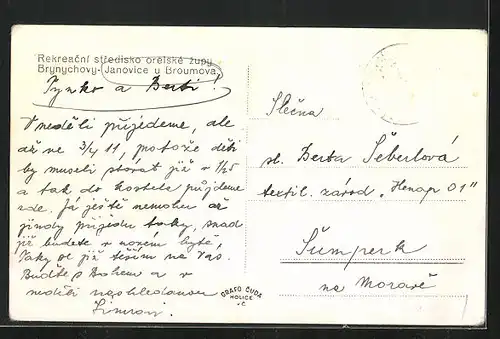 Rekreační středisko orelské župy
Brynychovy-Janovice u Broumova.
Tynko a Berti!
V neděli přijedeme, ale
až ve 3/4 11, protože děti
by museli stávat již v 1/25
a tak do kostela půjdeme
zde. Já ještě nemohu až
jindy přijedu taky, snad
již budete v novém bytě,
Taky se již těším na Vás.
Buďte s Bohem a v
neděli nashledanou
Slečna
sl. Berta Šeberlová
textil. závod „Henap 01"
Šumperk
na Moravě
GRAFO ČUDA
HOLICE
v Č.